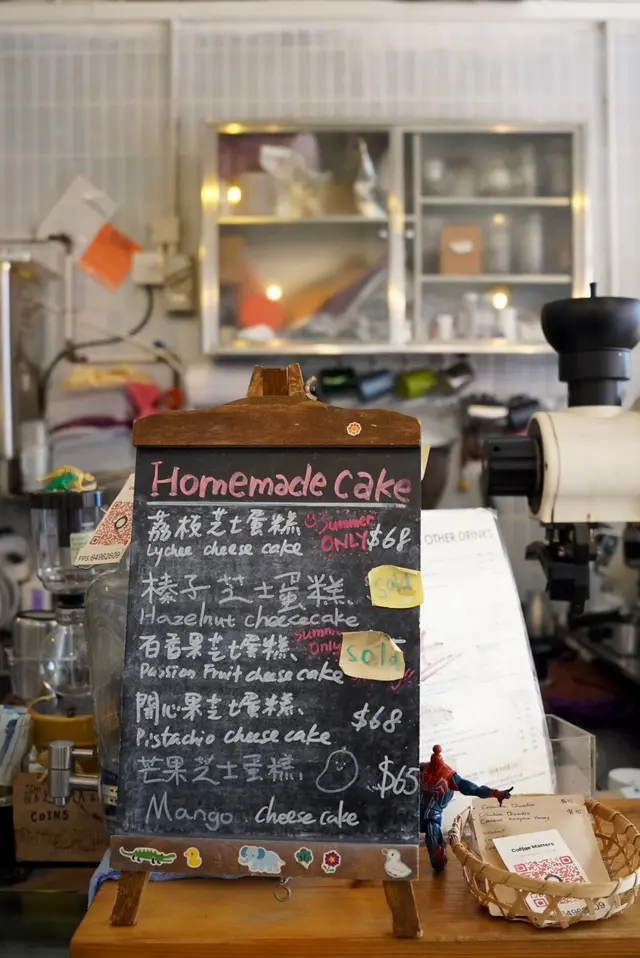 Homemade Cake
荔枝芝士蛋糕 Summer
ONLY $68
Lychee cheese cake
榛子芝士蛋糕 Sold
Hazelnut cheesecake
百香果芝士蛋糕 summer
Only sold
Passion Fruit cheese cake
開心果芝士蛋糕 $68
Pistachio cheese cake
芒果芝士蛋糕 $65
Mango cheese cake
OTHER DRINKS
FPS:64962609
COINS
Coffee Matters